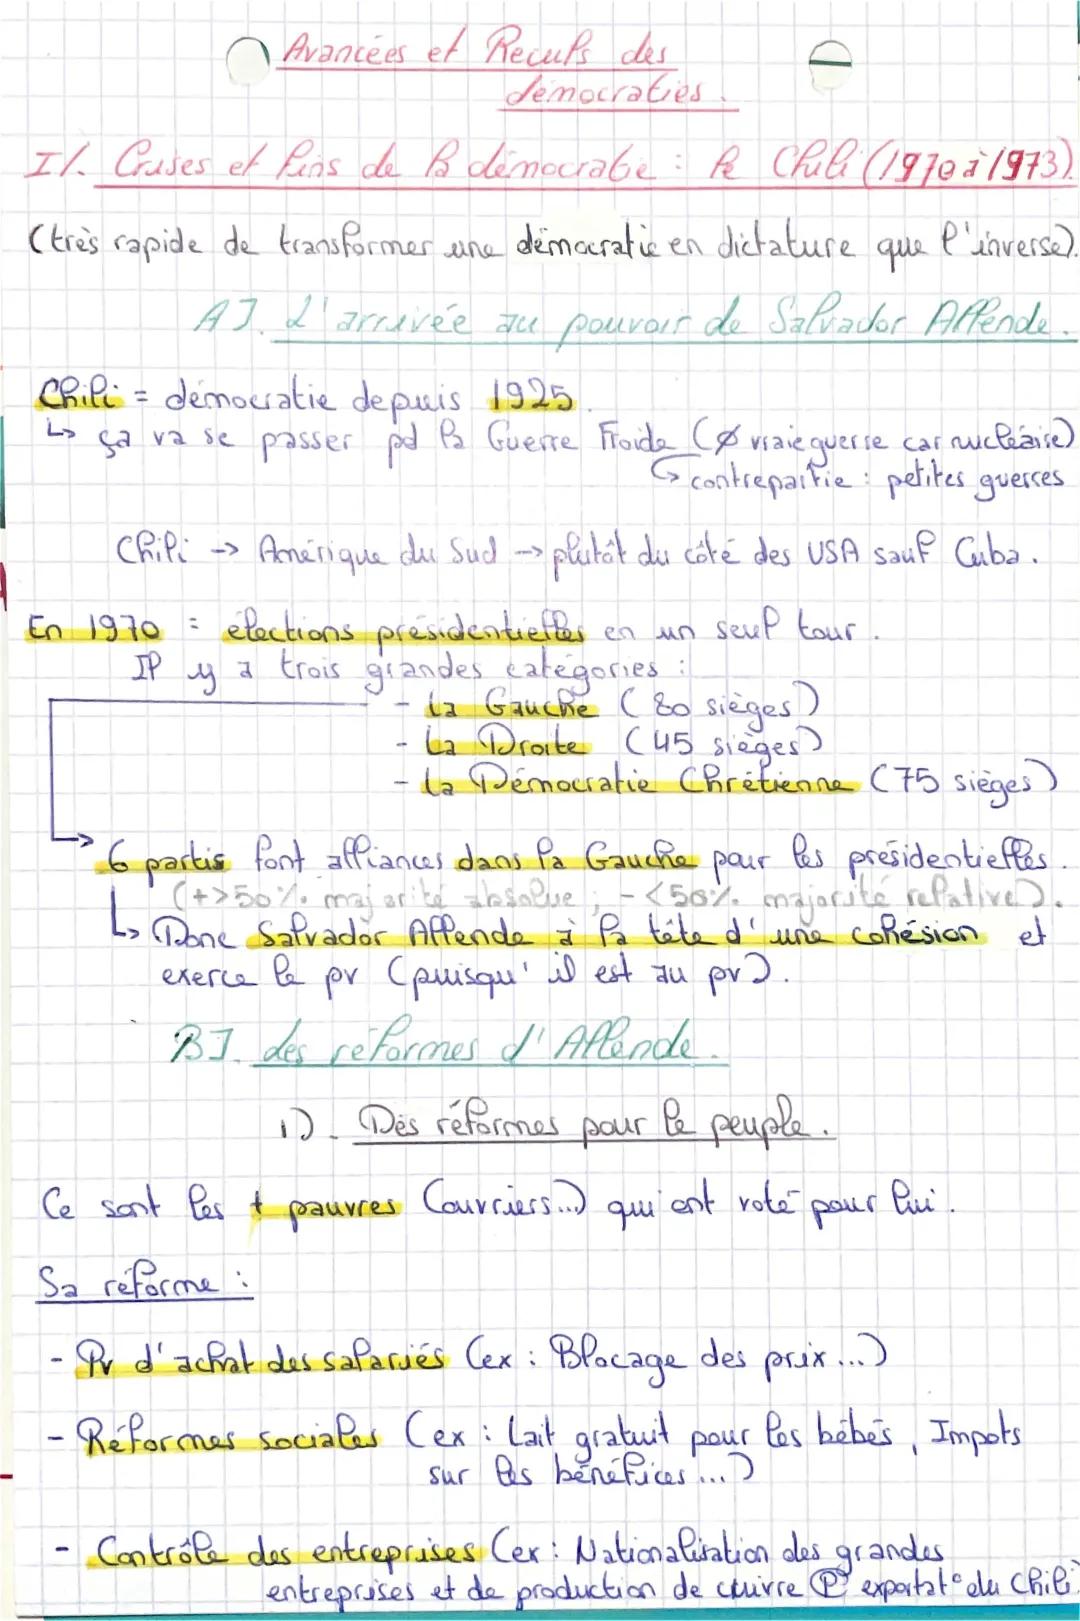 Avancées et Reculs des
démocraties.
I/. Crises et fins de la démocratie : le Chili (1970 à 1973).
(très rapide de transformer une démocratie en dictature que l'inverse).
A]. L'arrivée au pouvoir de Salvador Allende.
Chili = démocratie depuis 1925.
↳ ça va se passer pd la Guerre Froide (Ø vraie guerre car nucléaire)
↳ contrepartie : petites guerres
Chili → Amérique du Sud → plutôt du côté des USA sauf Cuba.
En 1970 : élections présidentielles en un seul tour.
Il y a trois grandes catégories :
- La Gauche (80 sièges)
- La Droite (45 sièges)
- La Démocratie Chrétienne (75 sièges)
→ 6 partis font alliances dans la Gauche pour les présidentielles.
(+>50% majorité absolue ; -<50% majorité relative).
↳ Donc Salvador Allende à la tête d'une cohésion et
exerce le pv (puisqu'il est au pv).
B]. des réformes d'Allende.
1). Des réformes pour le peuple.
Ce sont les + pauvres (ouvriers...) qui ont voté pour lui.
Sa réforme :
- Pv d'achat des salariés (ex : Blocage des prix...)
- Réformes sociales (ex : Lait gratuit pour les bébés, Impots
sur les bénéfices...)
- Contrôle des entreprises (ex : Nationalisation des grandes
entreprises et de production de cuivre exportat° du Chili)